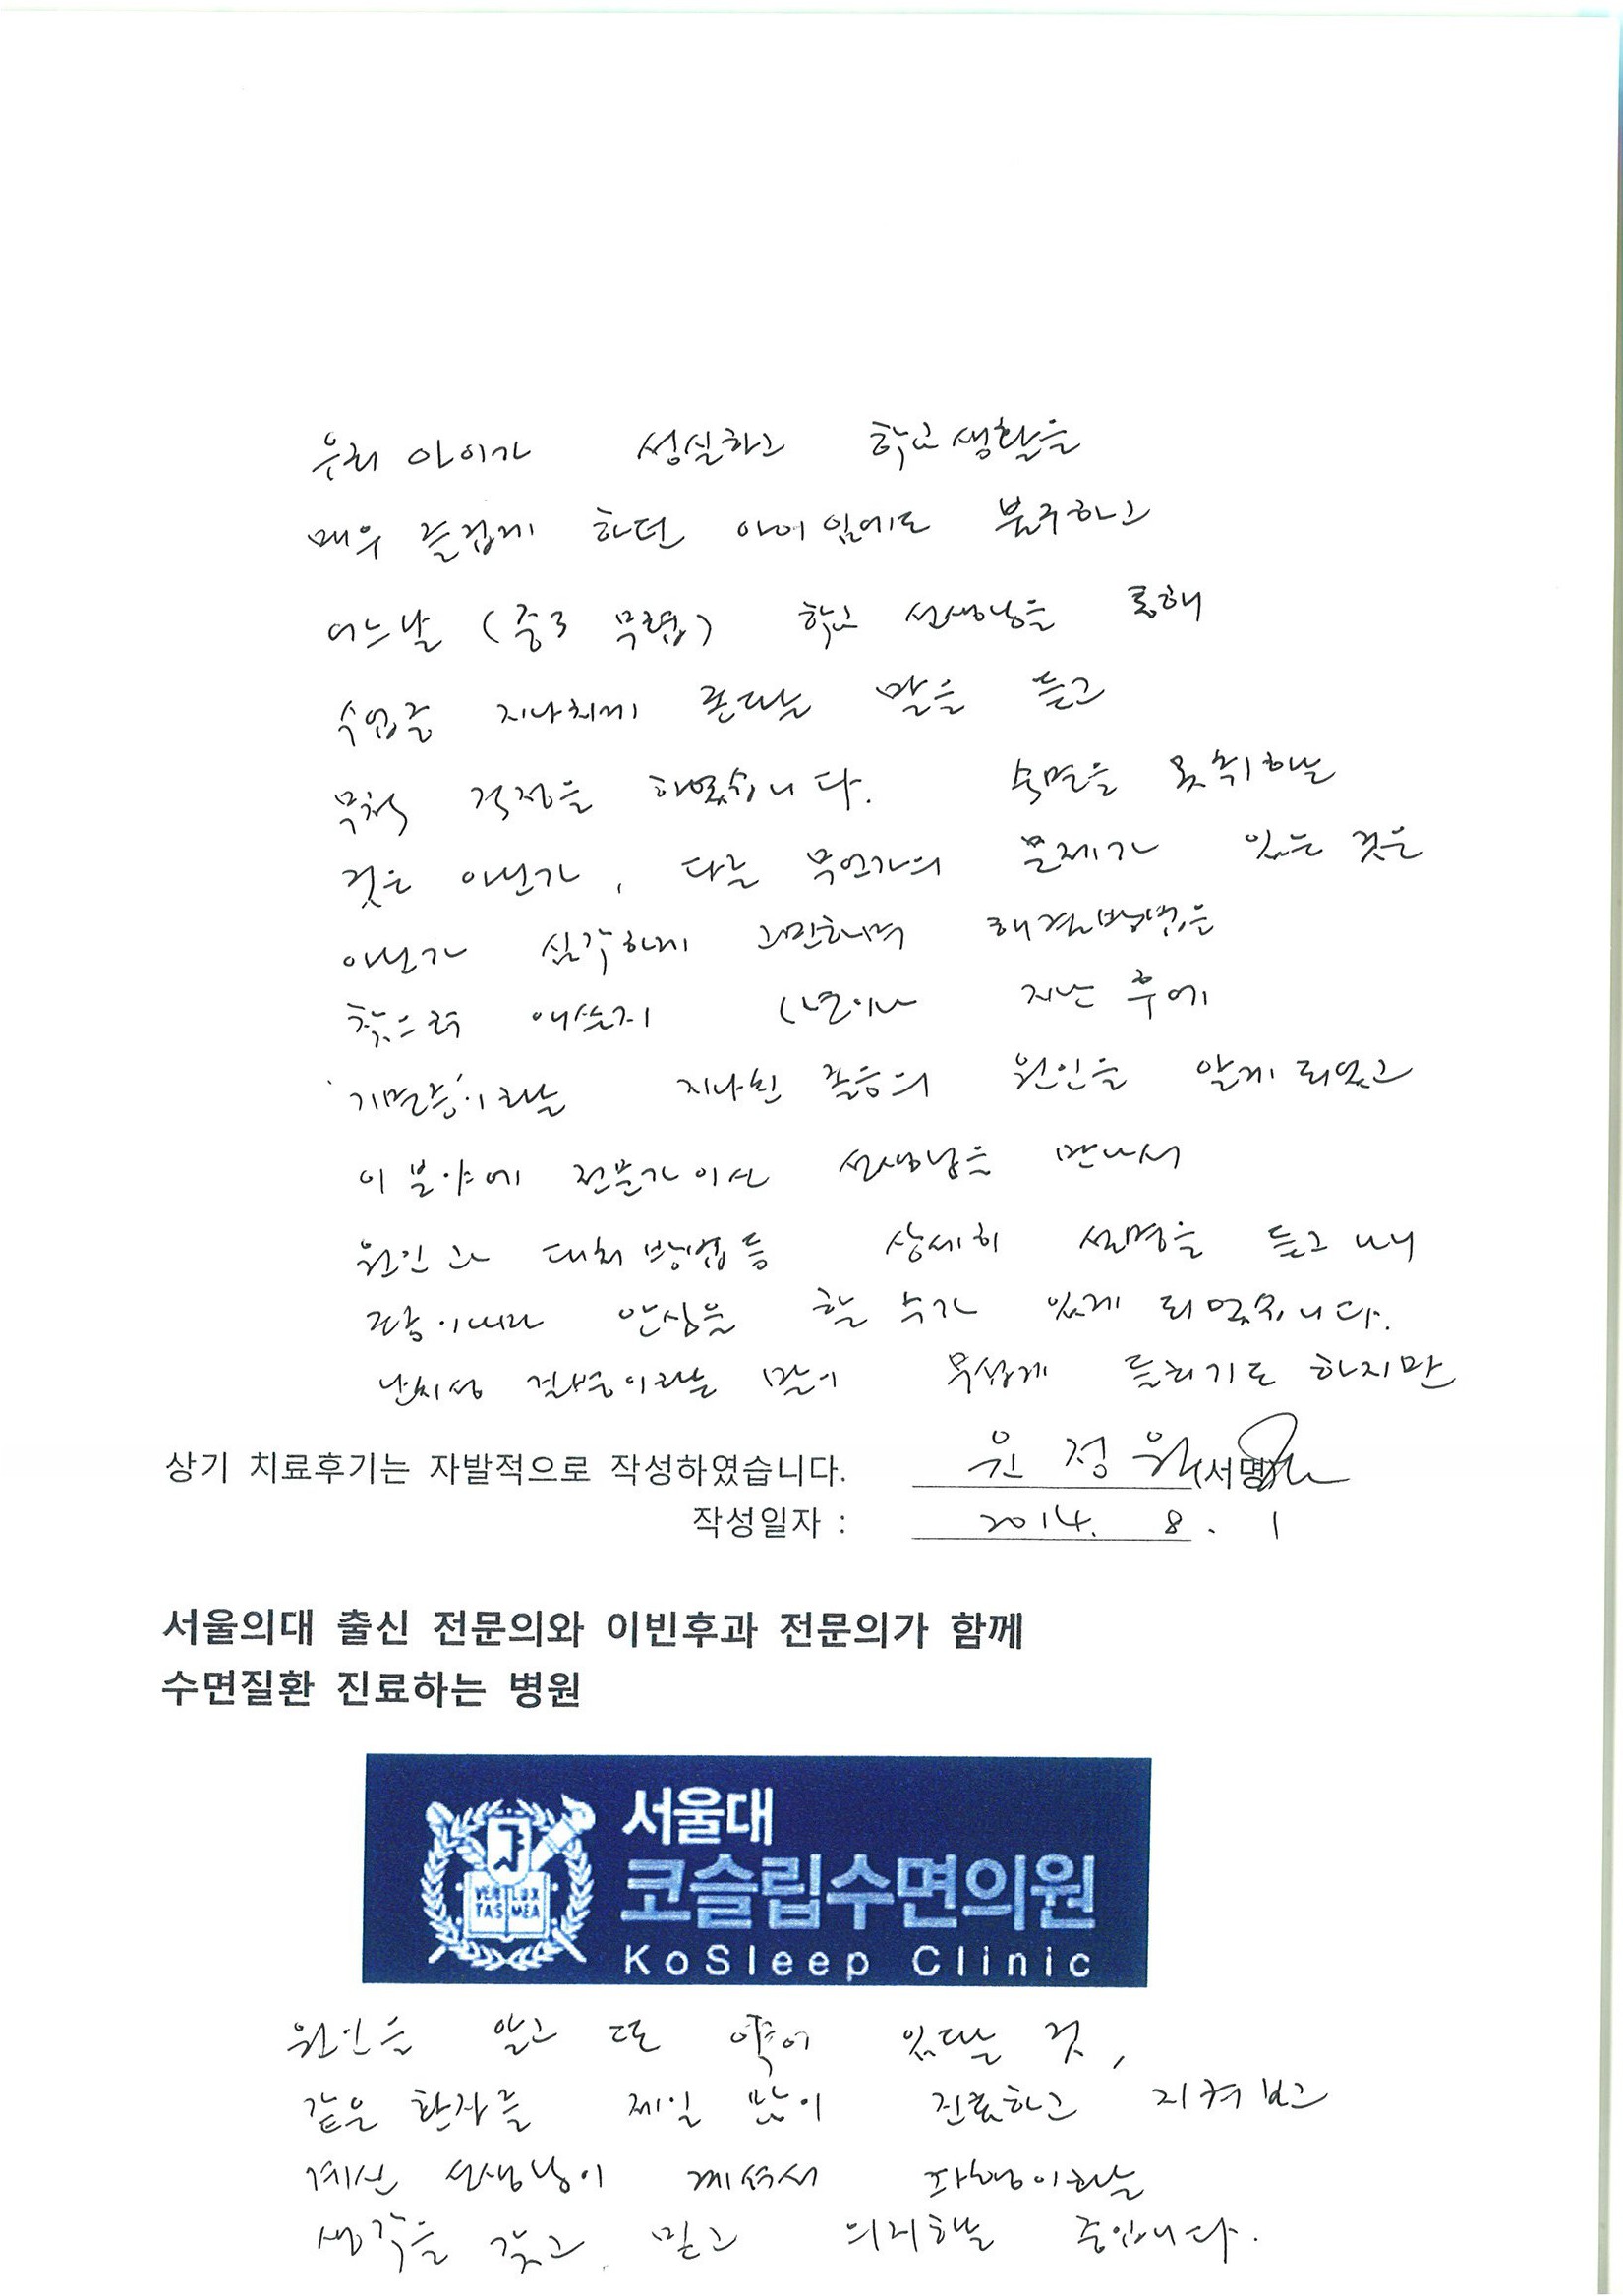 우리 아이가 성실하고 학교생활을
매우 즐겁게 하던 아이임에도 불구하고
어느날 (중3 무렵) 학교 선생님을 통해
수업중 지나치게 존다는 말을 듣고
무척 걱정을 하였습니다. 숙면을 못취하는
것은 아닌가, 다른 무언가의 문제가 있는 것은
아닌가 심각하게 고민하며 해결방법을
찾으려 애쓴지 1년이나 지난 후에
'기면증'이라는 지나친 졸음의 원인을 알게 되었고
이 분야에 전문가이신 선생님을 만나서
원인과 대처방법등 상세히 설명을 듣고 나니
조금이나마 안심을 할 수가 있게 되었습니다.
난치성 질병이라는 말이 무섭게 들리기도 하지만
상기 치료후기는 자발적으로 작성하였습니다. 윤정원 (서명)
작성일자 : 2014. 8. 1
서울의대 출신 전문의와 이빈후과 전문의가 함께
수면질환 진료하는 병원
서울대
코슬립수면의원
KoSleep Clinic
VERI LUX
TAS MEA
원인을 알고 또 약이 있다는 것,
같은 환자를 제일 많이 진료하고 지켜보고
계신 선생님이 계셔서 다행이라는
생각을 갖고 믿고 의지하는 중입니다.